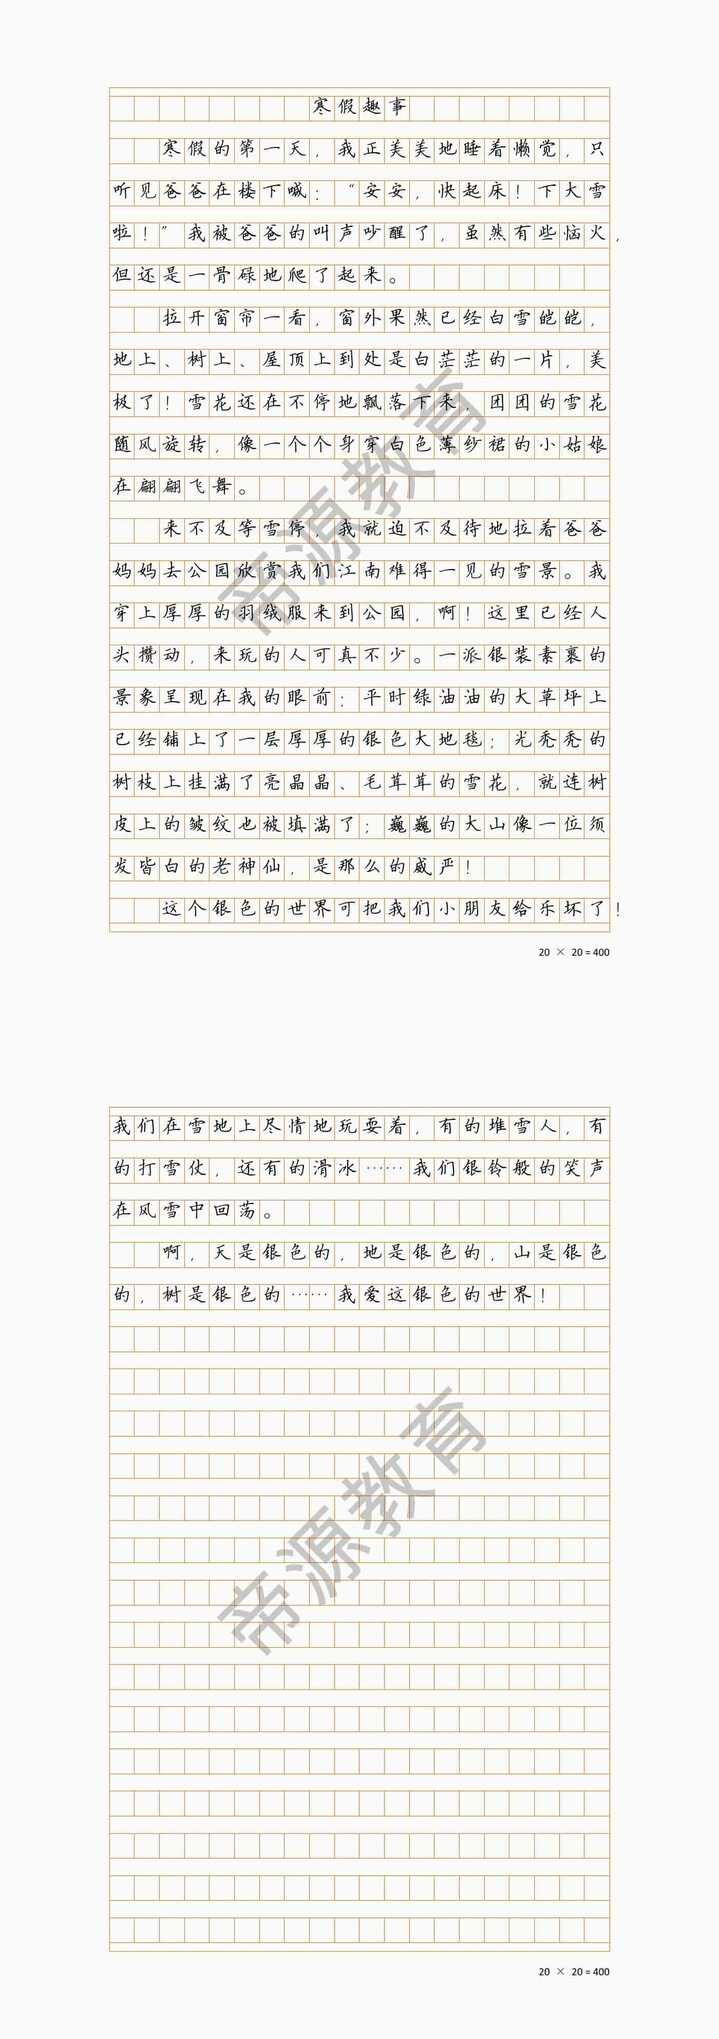 寒假趣事
寒假的第一天，我正美美地睡着懒觉，只
听见爸爸在楼下喊：“安安，快起床！下大雪
啦！”我被爸爸的叫声吵醒了，虽然有些恼火，
但还是一骨碌地爬了起来。
拉开窗帘一看，窗外果然已经白雪皑皑，
地上、树上、屋顶上到处是白茫茫的一片，美
极了！雪花还在不停地飘落下来，团团的雪花
随风旋转，像一个个身穿白色薄纱裙的小姑娘
在翩翩飞舞。
来不及等雪停，我就迫不及待地拉着爸爸
妈妈去公园欣赏我们江南难得一见的雪景。我
穿上厚厚的羽绒服来到公园，啊！这里已经人
头攒动，来玩的人可真不少。一派银装素裹的
景象呈现在我的眼前：平时绿油油的大草坪上
已经铺上了一层厚厚的银色大地毯；光秃秃的
树枝上挂满了亮晶晶、毛茸茸的雪花，就连树
皮上的皱纹也被填满了；巍巍的大山像一位须
发皆白的老神仙，是那么的威严！
这个银色的世界可把我们小朋友给乐坏了！
20 × 20 = 400
我们在雪地上尽情地玩耍着，有的堆雪人，有
的打雪仗，还有的滑冰……我们银铃般的笑声
在风雪中回荡。
啊，天是银色的，地是银色的，山是银色
的，树是银色的……我爱这银色的世界！
20 × 20 = 400
帝源教育
帝源教育